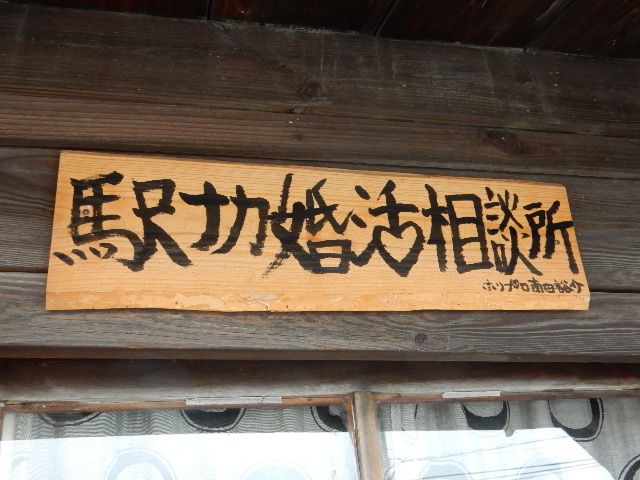 駅ナカ婚活相談所
ホリプロ南田裕介